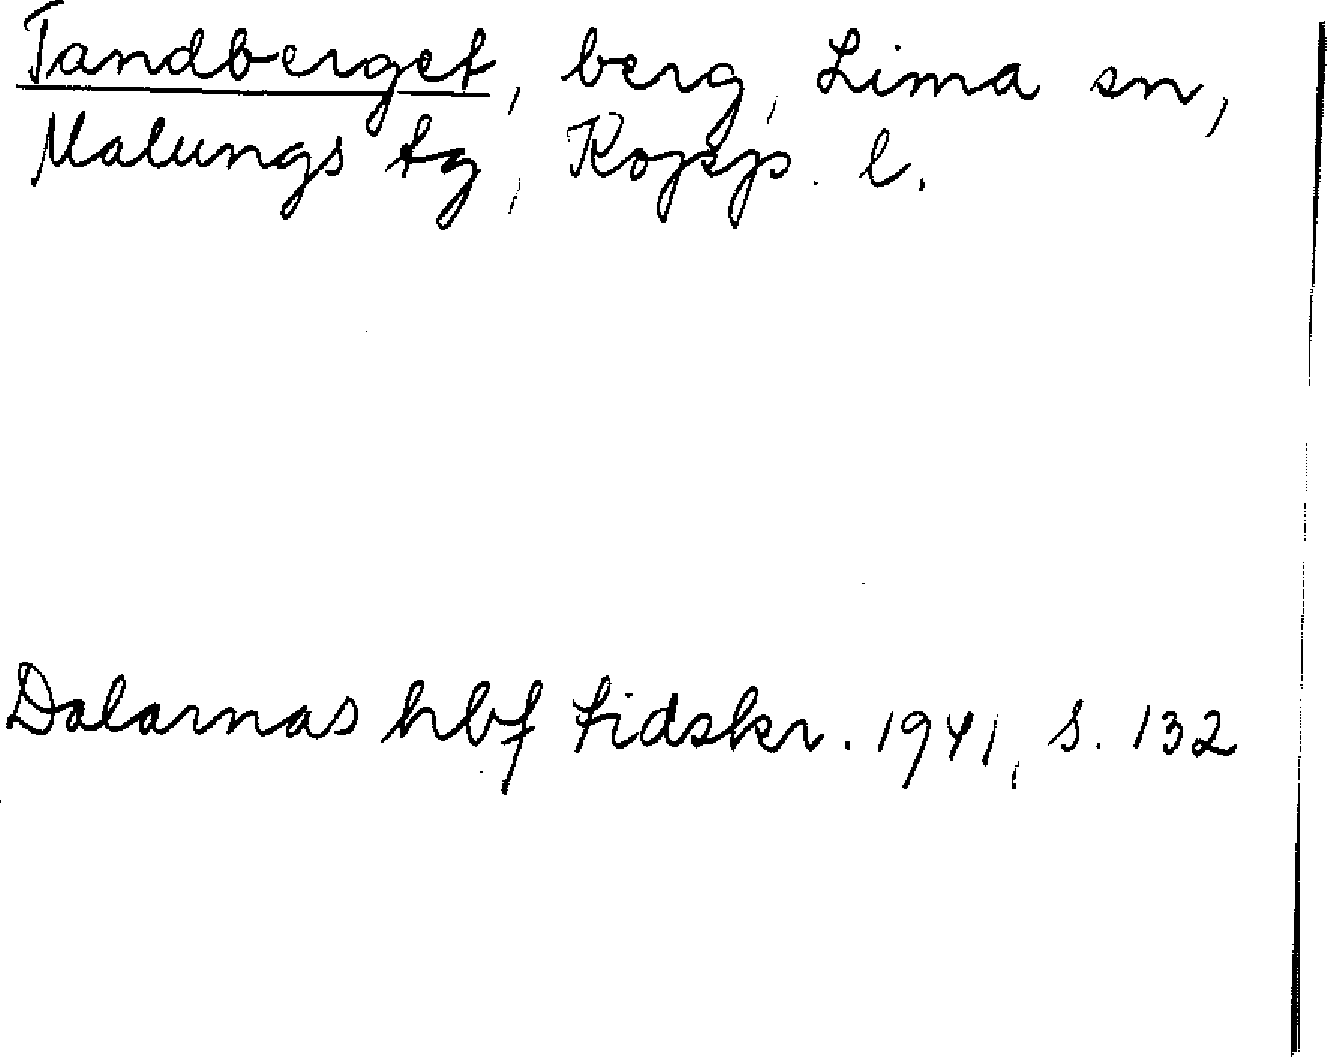 Tandberget, berg, Lima sn,
Malungs tg, Kopp. l.
Dalarnas hbf tidskr. 1941, s. 132